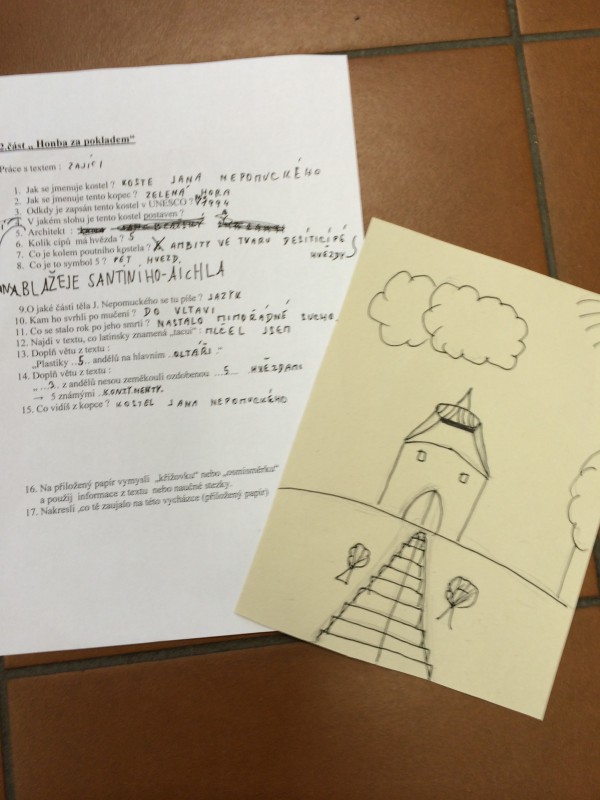 2.část „ Honba za pokladem"
Práce s textem : ZAJÍCI
1. Jak se jmenuje kostel ? KOSTE JANA NEPOMUCKÉHO
2. Jak se jmenuje tento kopec ? ZELENÁ HORA
3. Odkdy je zapsán tento kostel v UNESCO ? 1994
4. V jakém slohu je tento kostel postaven ?
5. Architekt :
6. Kolik cípů má hvězda ? 5
7. Co je kolem poutního kostela ? AMBITY VE TVARU DESITICÍPÉ HVĚZDY
8. Co je to symbol 5 ? PĚT HVĚZD.
BLAŽEJE SANTINIHO-AICHLA
9.O jaké části těla J. Nepomuckého se tu píše ? JAZYK
10. Kam ho svrhli po mučení ? DO VLTAVI
11. Co se stalo rok po jeho smrti ? NASTALO MIMOŘÁDNÉ SUCHO.
12. Najdi v textu, co latinsky znamená „tacui" : MLČEL JSEM
13. Doplň větu z textu :
„Plastiky ..5.. andělů na hlavním ..OLTÁŘI ."
14. Doplň větu z textu :
„ ..3.. z andělů nesou zeměkouli ozdobenou ...5... HVĚZDAMI
→ 5 známými ..KONTYMENTY.
15. Co vidíš z kopce ? KOSTEL JANA NEPOMUCKÉHO
16. Na přiložený papír vymysli „křížovku" nebo „osmisměrku"
a použij informace z textu nebo naučné stezky.
17. Nakresli ,co tě zaujalo na této vycházce (přiložený papír)